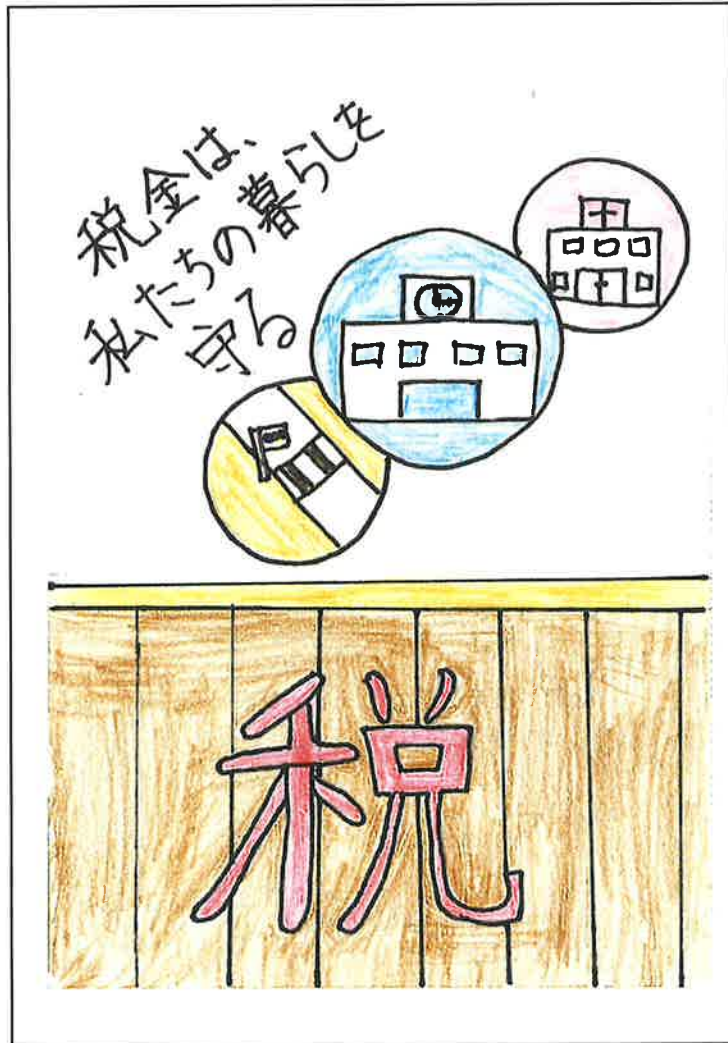 税金は、
私たちの暮らしを
守る
税